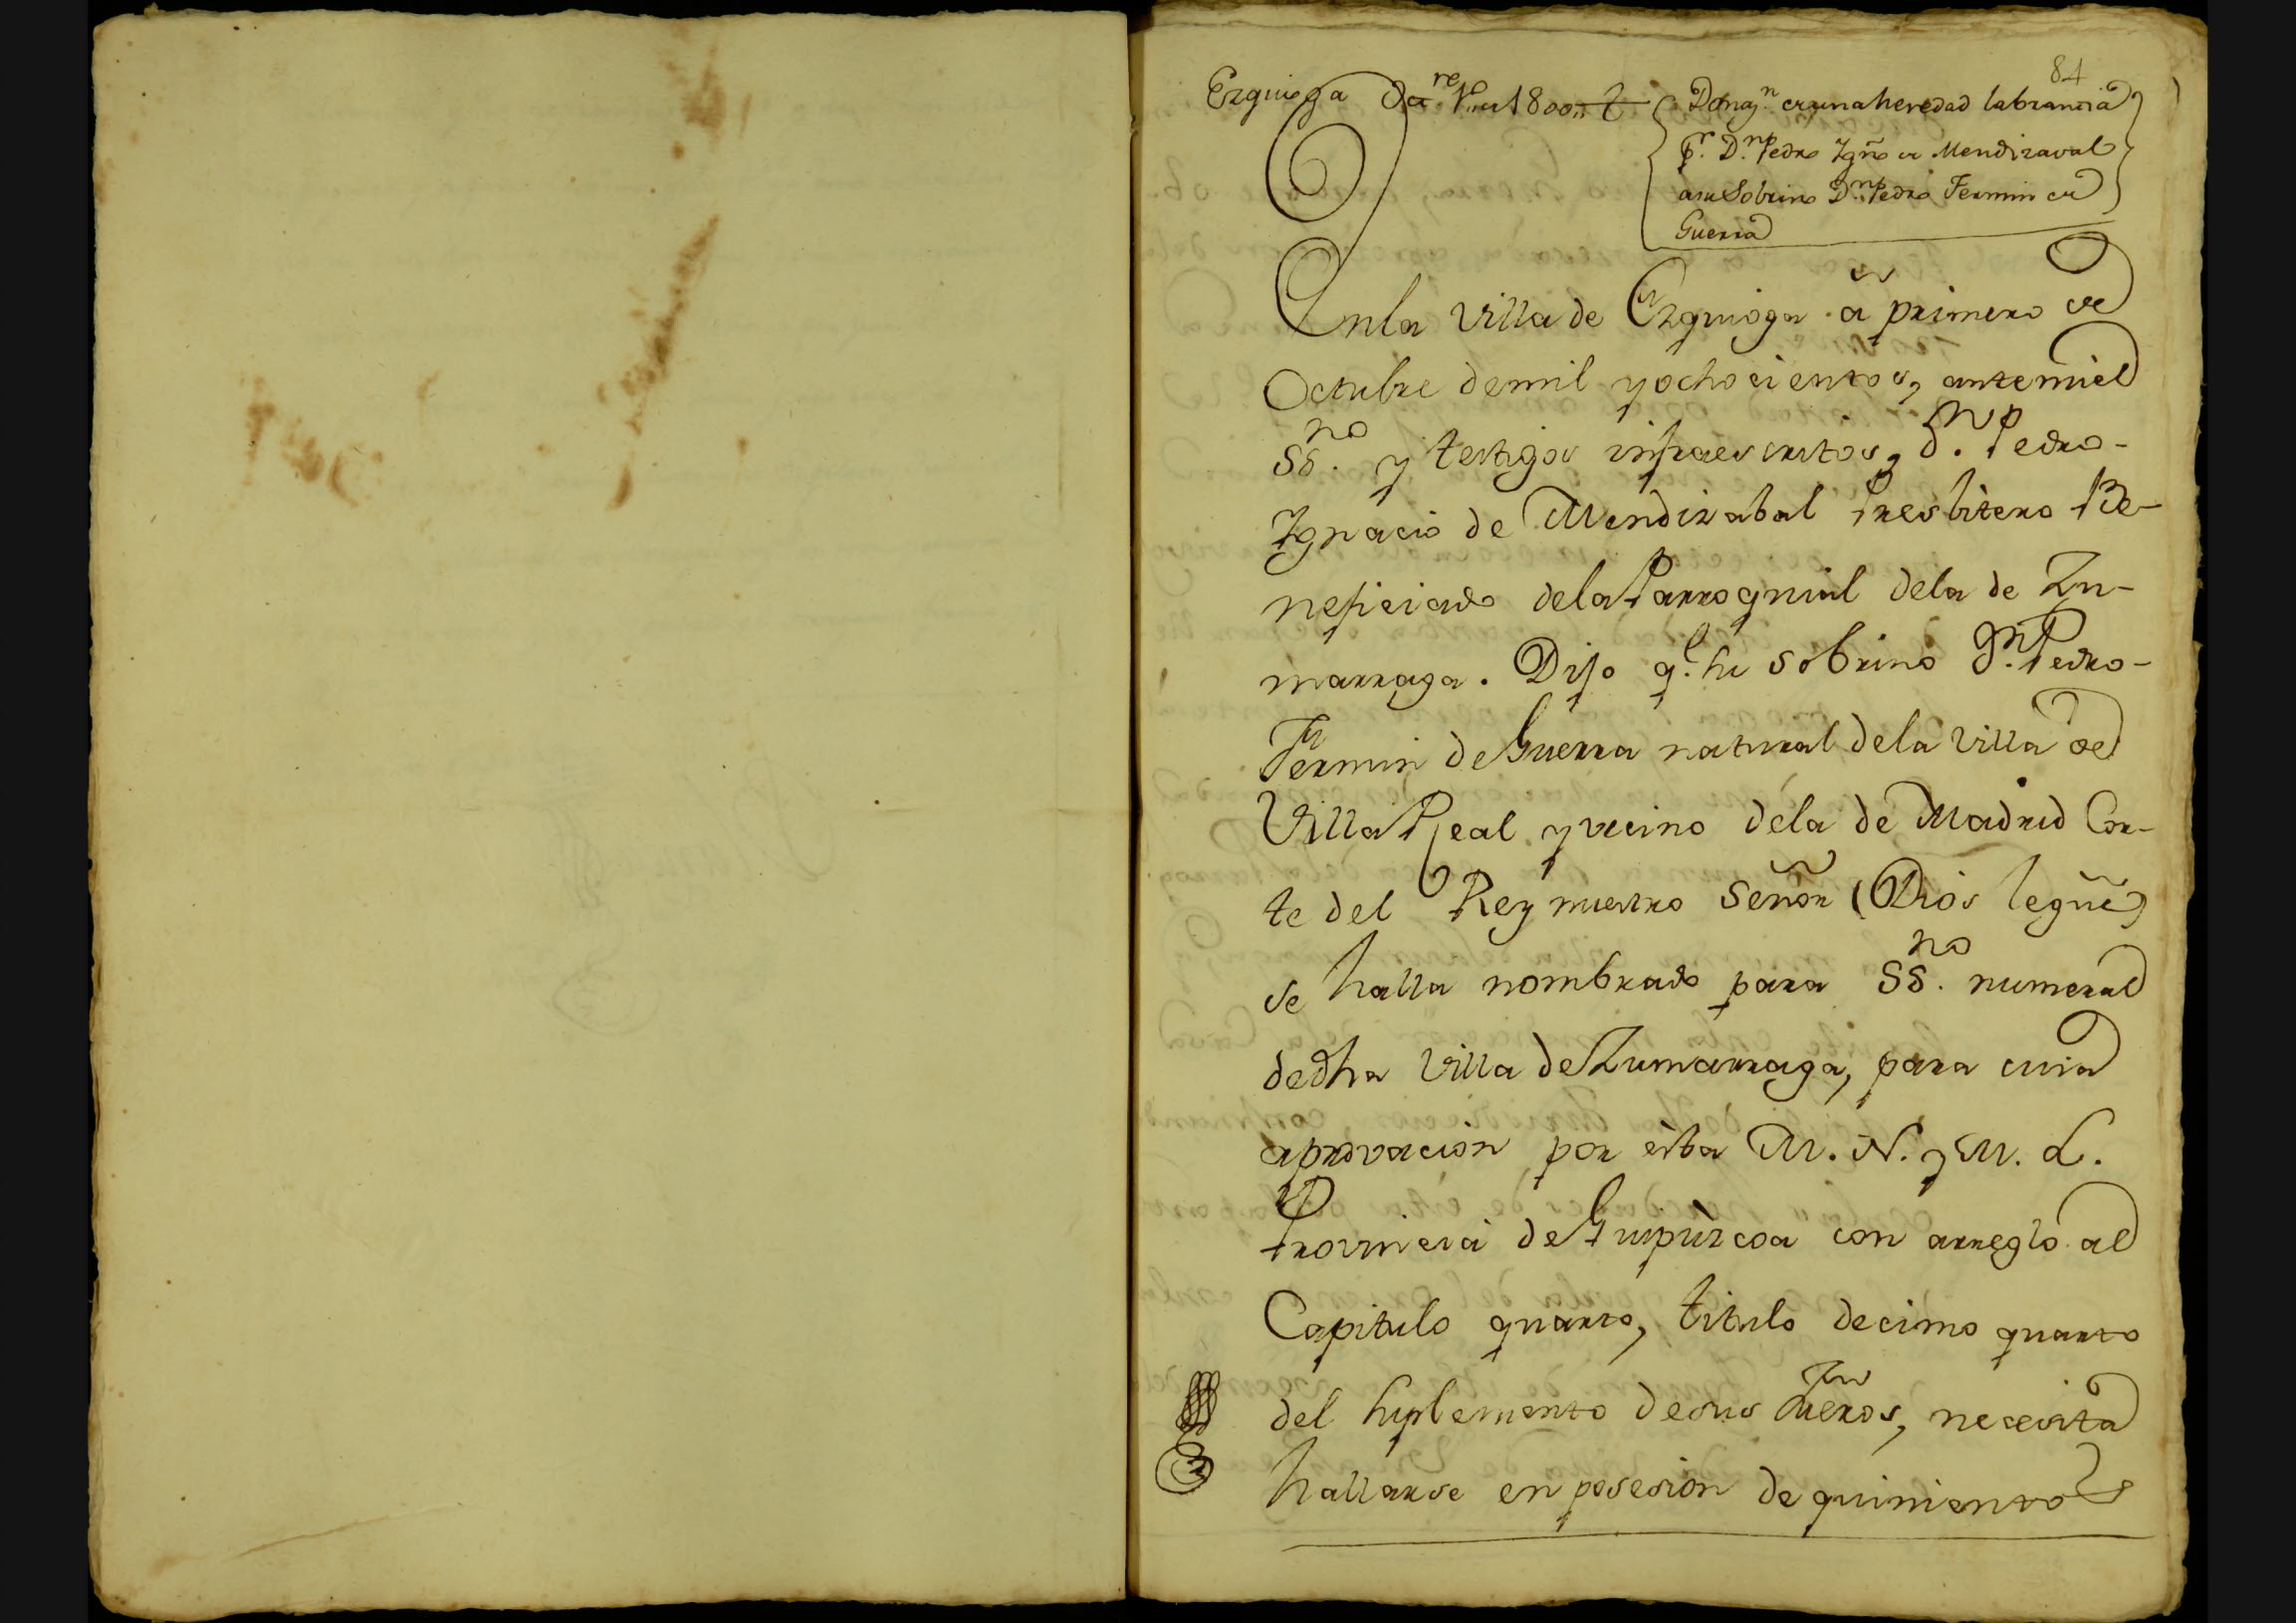 84
Ezquioga Oct.re 1.. de 1800..
Donaz.n de una heredad labrancia
p.r D.n Pedro Ygn.o de Mendizaval
asu Sobrino D.n Pedro Fermin de
Guerra
Enla Villa de Ezquioga â primero de
Octubre demil yochocientos, antemi el
SS.no y testigos infraescritos, d.n Pedro-
Ygnacio de Mendizabal Presbitero Be-
neficiado dela Parroquial dela de Zu-
marraga. Dijo q.e su sobrino d.n Pedro-
Fermin de Guerra natural dela Villa de
Villa Real y vecino dela de Madrid Cor-
te del Rey nuestro Señor (Dios legûe)
se halla nombrado para SS.no numeral
dedha Villa de Zumarraga, para cuia
aprovacion por esta M. N. y M. L.
Provincia de Guipùzcoa con arreglo al
Capitulo quarto, titulo decimo quarto
del suplemento desus fueros, necesita
hallarse en posesion de quinientos